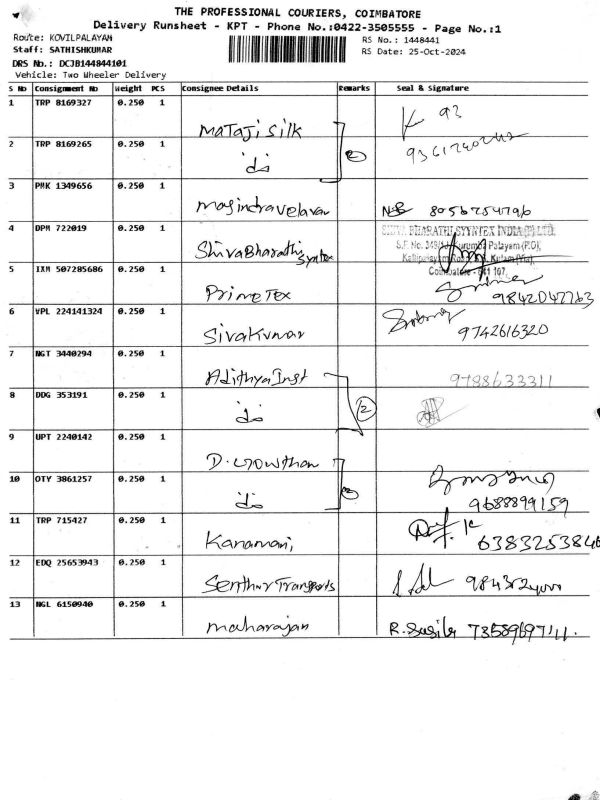 THE PROFESSIONAL COURIERS, COIMBATORE
Delivery Runsheet - KPT - Phone No.:0422-3505555 - Page No.:1
Route: KOVILPALAYAM
RS No.: 1448441
Staff: SATHISHKUMAR
RS Date: 25-Oct-2024
DRS No.: DCJB144844101
Vehicle: Two Wheeler Delivery
S No Consignment No Weight PCS Consignee Details Remarks Seal & Signature
1 TRP 8169327 0.250 1
Mataji Silk 93
2 TRP 8169265 0.250 1
do 2
3 PMK 1349656 0.250 1
Magindravelavan 8056754796
4 DPM 722019 0.250 1 SHIVA BHARATHI SYNTEX INDIA (P) LTD.
ShivaBharathi Syntex
Coimbatore - 641 107.
5 IXM 507285686 0.250 1
PrimeTex 9842047763
6 VPL 224141324 0.250 1
Sivakumar 9742616320
7 NGT 3440294 0.250 1
Adithya Inst 9788633311
8 DDG 353191 0.250 1
do 2
9 UPT 2240142 0.250 1
D. Gowtham
10 OTY 3861257 0.250 1
do 9688899159
11 TRP 715427 0.250 1
Kanamani, 6383253846
12 EDQ 25653943 0.250 1
Senthur Transports
13 NGL 6150940 0.250 1
maharajan R. Susila